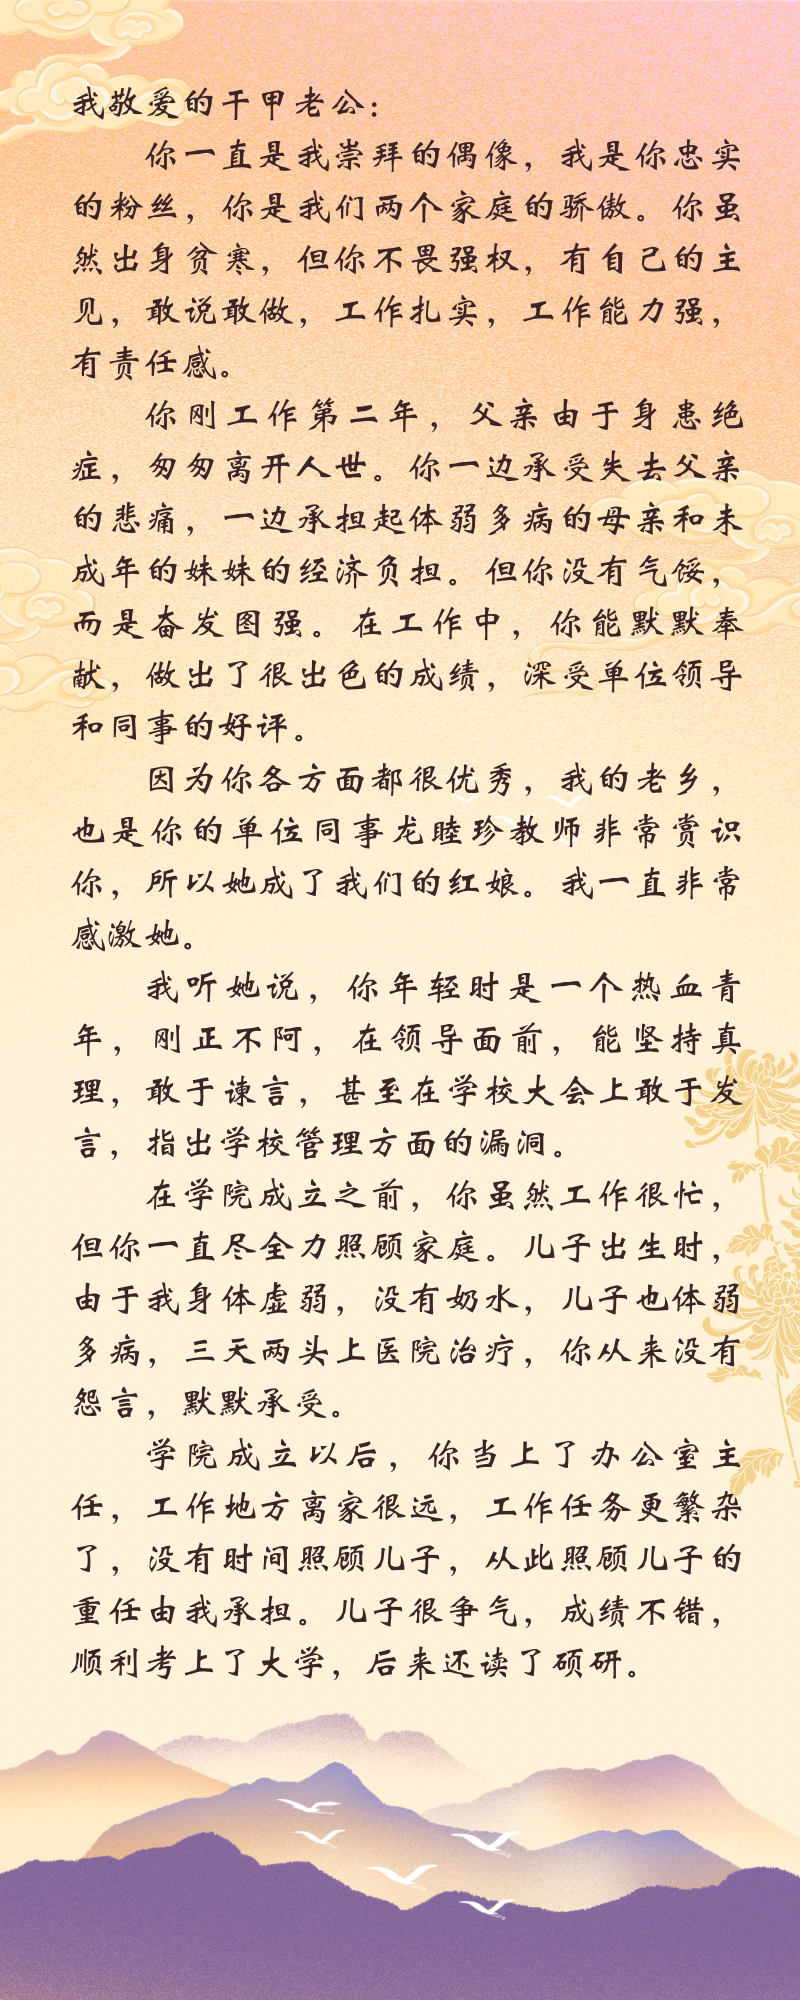 我敬爱的干甲老公：
你一直是我崇拜的偶像，我是你忠实
的粉丝，你是我们两个家庭的骄傲。你虽
然出身贫寒，但你不畏强权，有自己的主
见，敢说敢做，工作扎实，工作能力强，
有责任感。
你刚工作第二年，父亲由于身患绝
症，匆匆离开人世。你一边承受失去父亲
的悲痛，一边承担起体弱多病的母亲和未
成年的妹妹的经济负担。但你没有气馁，
而是奋发图强。在工作中，你能默默奉
献，做出了很出色的成绩，深受单位领导
和同事的好评。
因为你各方面都很优秀，我的老乡，
也是你的单位同事龙睦珍教师非常赏识
你，所以她成了我们的红娘。我一直非常
感激她。
我听她说，你年轻时是一个热血青
年，刚正不阿，在领导面前，能坚持真
理，敢于谏言，甚至在学校大会上敢于发
言，指出学校管理方面的漏洞。
在学院成立之前，你虽然工作很忙，
但你一直尽全力照顾家庭。儿子出生时，
由于我身体虚弱，没有奶水，儿子也体弱
多病，三天两头上医院治疗，你从来没有
怨言，默默承受。
学院成立以后，你当上了办公室主
任，工作地方离家很远，工作任务更繁杂
了，没有时间照顾儿子，从此照顾儿子的
重任由我承担。儿子很争气，成绩不错，
顺利考上了大学，后来还读了硕研。